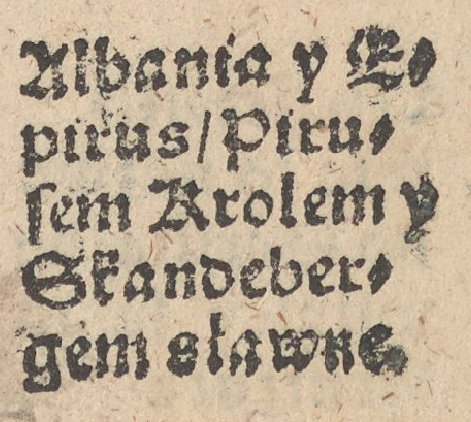 Albania y E⸗
pirus/Piru⸗
ſem Krolem y
Skandeber⸗
gem sławne.